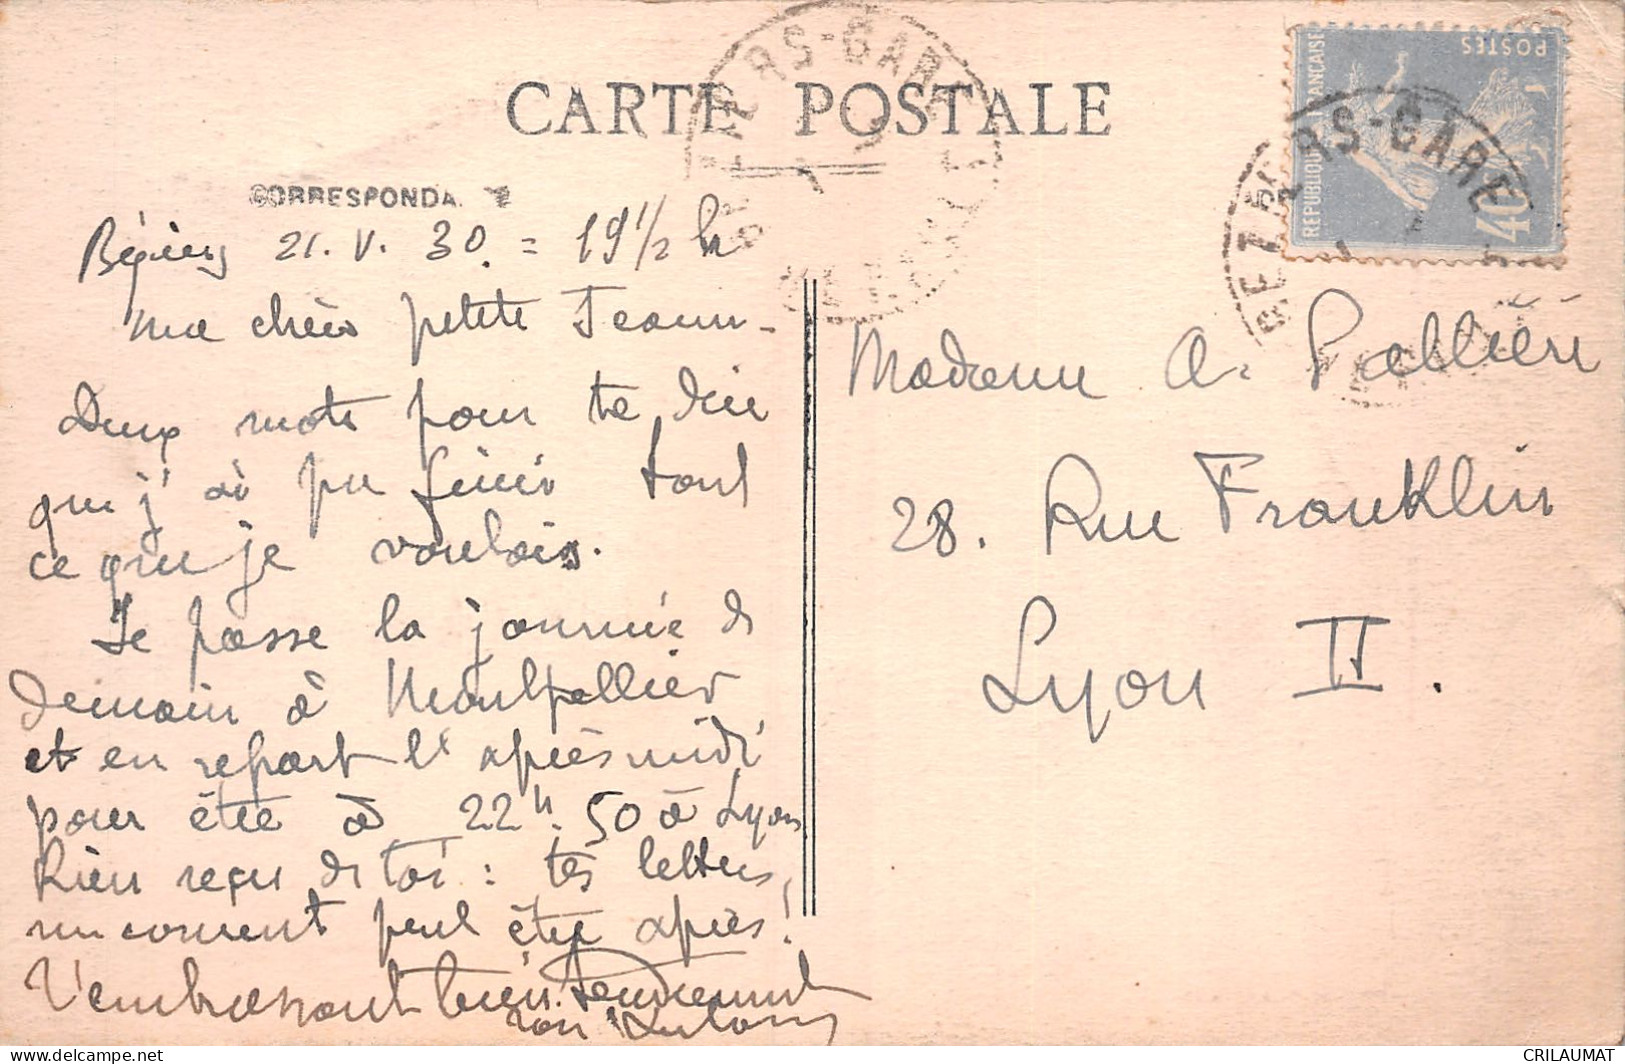 CARTE POSTALE
CORRESPONDA
BEZIERS-GARE
BEZIERS-GARE
POSTES
REPUBLIQUE FRANÇAISE
40
Béziers 21. V. 30. = 19 1/2 h
Ma chère petite Jeann-
Deux mots pour te dire
que j'ai pu finir tout
ce que je voulais.
Je passe la journée de
demain à Montpellier
et en repart l'après midi
pour être à 22h. 50 à Lyon
Rien reçu de toi : tes lettres
me courent peut être après !
T'embrassant bien tendrement
ton Antony
Madame A. Pallière
28. Rue Franklin
Lyon II.
delcampe.net
CRILAUMAT